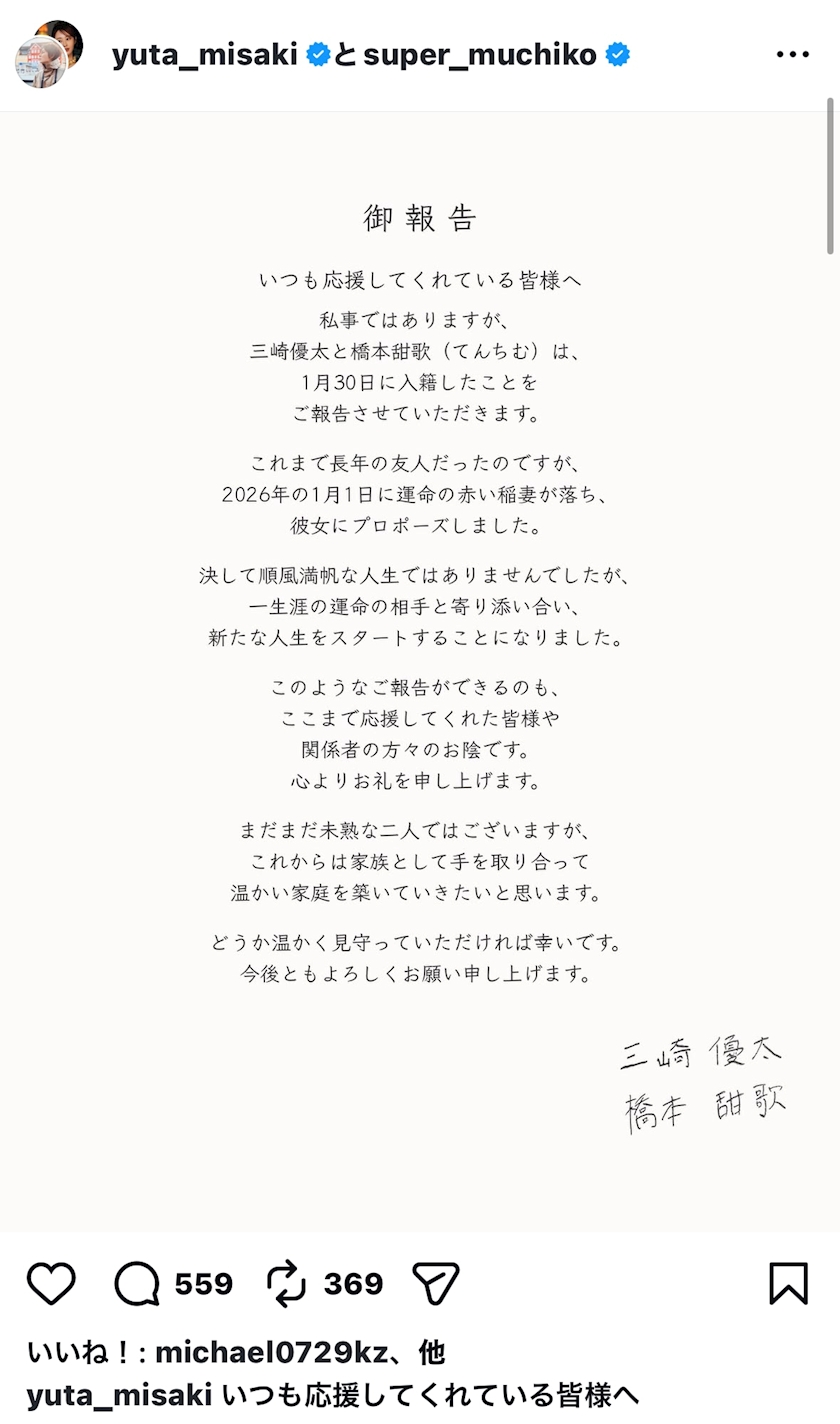 yuta_misaki と super_muchiko
御報告
いつも応援してくれている皆様へ
私事ではありますが、
三崎優太と橋本甜歌（てんちむ）は、
1月30日に入籍したことを
ご報告させていただきます。
これまで長年の友人だったのですが、
2026年の1月1日に運命の赤い稲妻が落ち、
彼女にプロポーズしました。
決して順風満帆な人生ではありませんでしたが、
一生涯の運命の相手と寄り添い合い、
新たな人生をスタートすることになりました。
このようなご報告ができるのも、
ここまで応援してくれた皆様や
関係者の方々のお陰です。
心よりお礼を申し上げます。
まだまだ未熟な二人ではございますが、
これからは家族として手を取り合って
温かい家庭を築いていきたいと思います。
どうか温かく見守っていただければ幸いです。
今後ともよろしくお願い申し上げます。
三崎 優太
橋本 甜歌
559 369
いいね！: michael0729kz、他
yuta_misaki いつも応援してくれている皆様へ